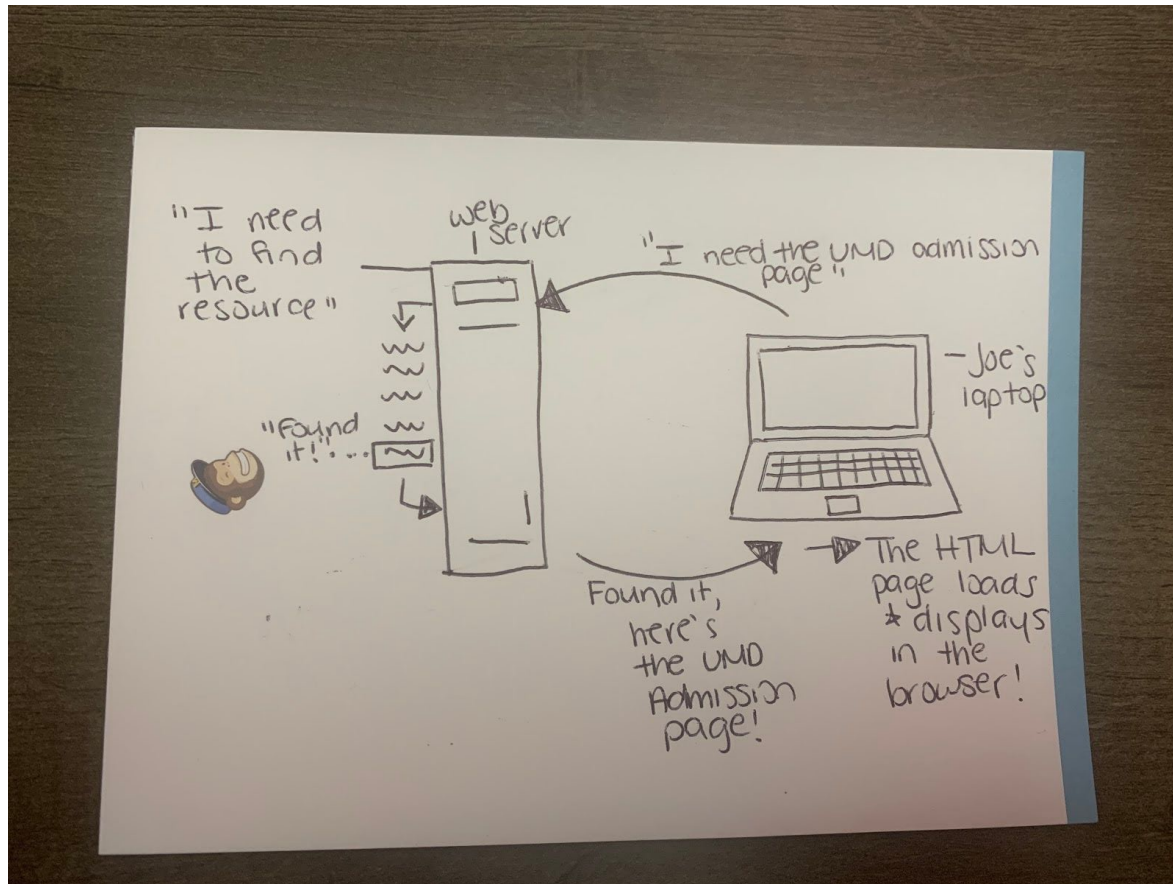 "I need
to find
the
resource"
web
server
"I need the UMD admission
page"
-Joe's
laptop
"Found
it!"...
Found it,
here's
the UMD
Admission
page!
The HTML
page loads
* displays
in the
browser!